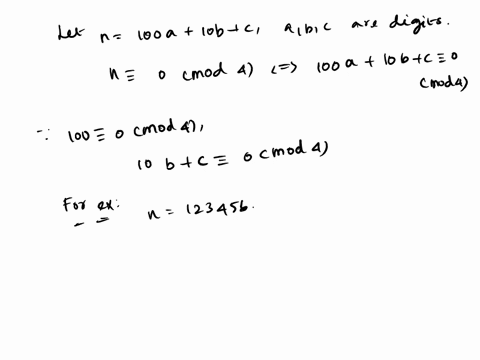 Let n = 100a + 10b + c, a, b, c are digits.
n ≡ 0 (mod 4) <=> 100a + 10b + c ≡ 0
(mod 4)
∵ 100 ≡ 0 (mod 4),
10 b + c ≡ 0 (mod 4)
For ex: n = 123456.